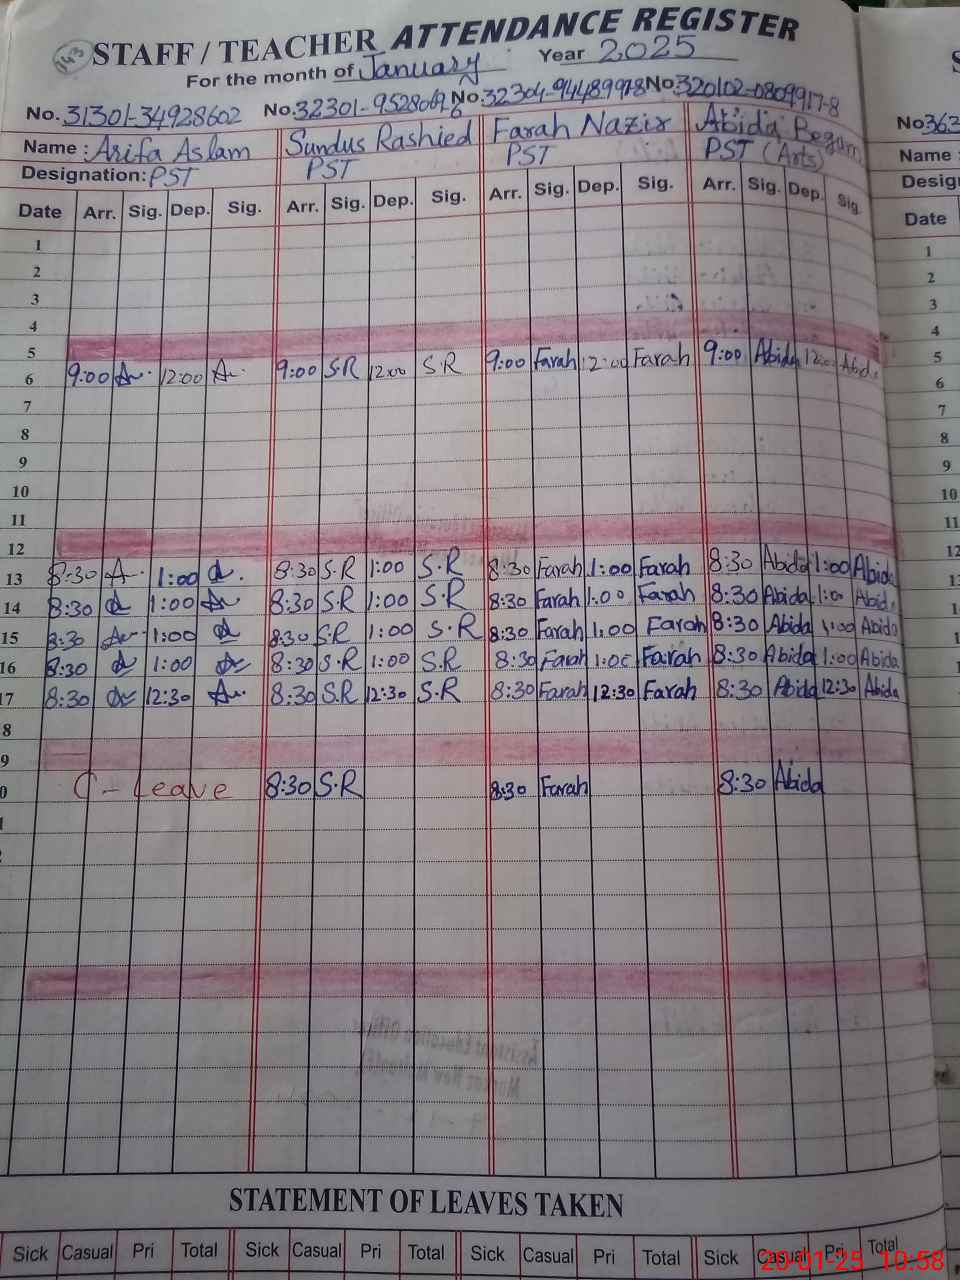 143
STAFF / TEACHER ATTENDANCE REGISTER
For the month of January Year 2025
No. 31301-34928602 No. 32301-9528069 6 No. 32304-9448997-8 No. 320102-0809917-8
Name : Arifa Aslam Sundus Rashied Farah Nazir Abida Begum
Designation: PST PST PST PST (Arts)
Date Arr. Sig. Dep. Sig. Arr. Sig. Dep. Sig. Arr. Sig. Dep. Sig. Arr. Sig. Dep. Sig.
1
2
3
4
5
6 9:00 A. 12:00 A. 9:00 S.R 12:00 S.R 9:00 Farah 12:00 Farah 9:00 Abida 12:00 Abida
7
8
9
10
11
12
13 8:30 A. 1:00 8:30 S.R 1:00 S.R 8:30 Farah 1:00 Farah 8:30 Abida 1:00 Abida
14 8:30 1:00 8:30 S.R 1:00 S.R 8:30 Farah 1:00 Farah 8:30 Abida 1:00 Abida
15 8:30 1:00 8:30 S.R 1:00 S.R 8:30 Farah 1:00 Farah 8:30 Abida 1:00 Abida
16 8:30 1:00 8:30 S.R 1:00 S.R 8:30 Farah 1:00 Farah 8:30 Abida 1:00 Abida
17 8:30 12:30 8:30 S.R 12:30 S.R 8:30 Farah 12:30 Farah 8:30 Abida 12:30 Abida
8
9
0 C - Leave 8:30 S.R 8:30 Farah 8:30 Abida
STATEMENT OF LEAVES TAKEN
Sick Casual Pri Total Sick Casual Pri Total Sick Casual Pri Total Sick Casual Pri Total
20-01-25 10:58
No 363
Name :
Desig
Date
1
2
3
4
5
6
7
8
9
10
11
12